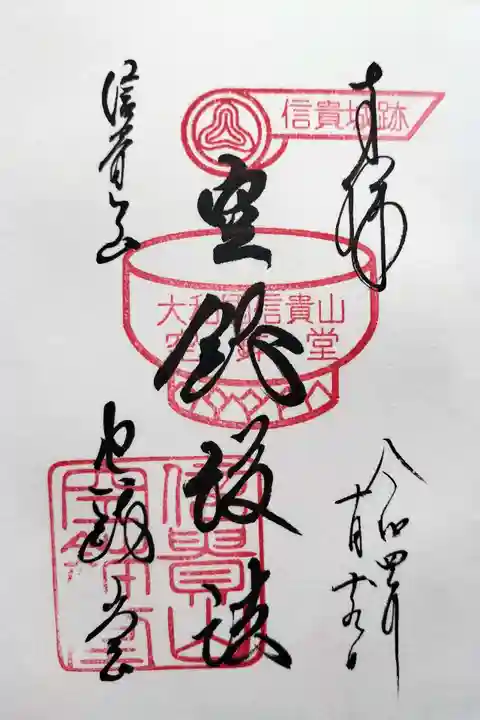 奉拝
令和四年
十月十九日
信貴城跡
空鉢護法
大和国信貴山
空鉢堂
信貴山
空鉢堂
信貴山
空鉢堂